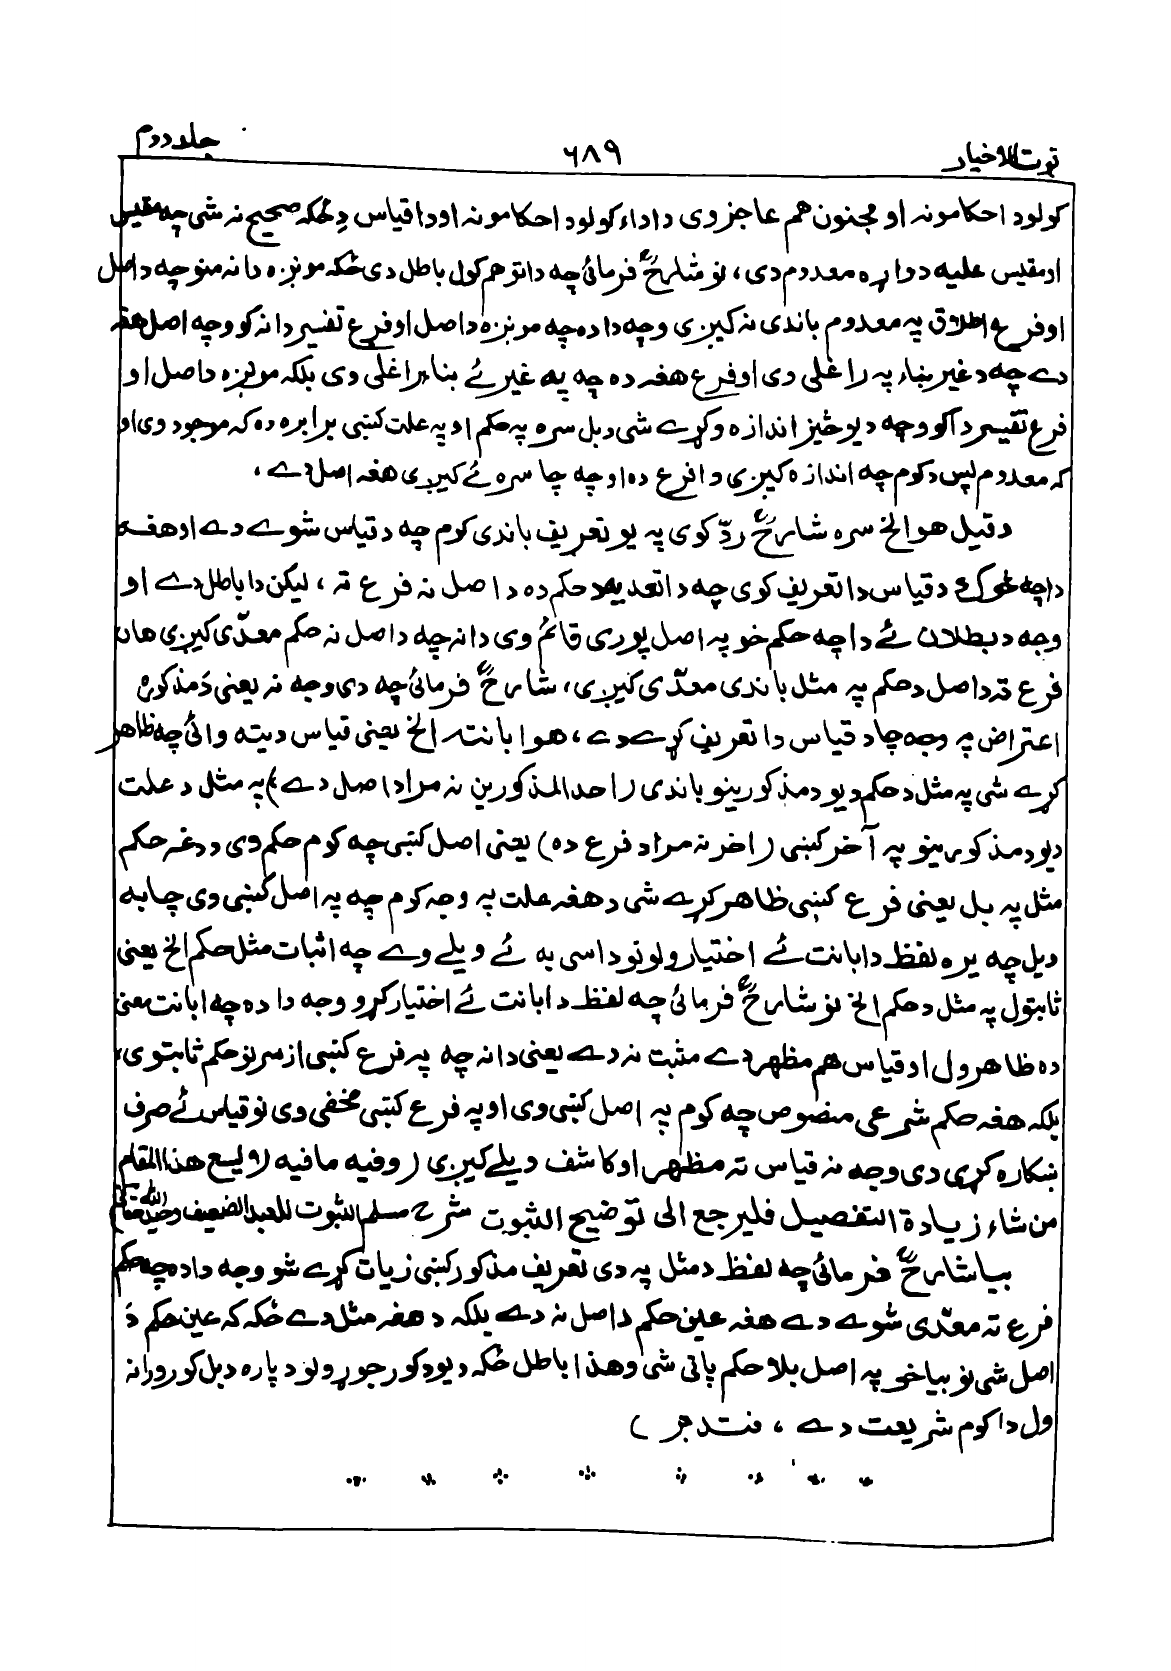 قوت الاخیار ۶۸۹ جلد دوم
کولو د احکامونه او مجنون هم عاجز وی د اداء کولو د احکامونه او دا قیاس دِ ځکه صحیح نه شی چه مقیس
او مقیس علیه دواړه معدوم دی، نو شارحؒ فرمائی چه دا توهم کول باطل دی ځکه مونږه دا نه منو چه د اصل
او فرع اطلاق په معدوم باندی نه کیږی وجه دا ده چه مونږه د اصل او فرع تفسیر دا نه کوو چه اصل هغه
دے چه د غیر بناء په راغلی وی او فرع هغه ده چه په غیر ئے بناء راغلی وی بلکه مونږه د اصل او
فرع تفسیر دا کوو چه د یو څیز اندازه وکړے شی د بل سره په حکم او په علت کښی برابره ده که موجود وی او
که معدوم پس د کوم چه اندازه کیږی دا فرع ده او چه چا سره ئے کیږی هغه اصل دے ،
د قیل هو الخ سره شارحؒ ردّ کوی په یو تعریف باندی کوم چه د قیاس شوے دے او هغه
دا چه څوک د قیاس دا تعریف کوی چه دا تعدیه د حکم ده د اصل نه فرع ته ، لیکن دا باطل دے او
وجه د بطلان ئے دا چه حکم خو په اصل پوری قائم وی دا نه چه د اصل نه حکم معدّی کیږی هان
فرع ته د اصل د حکم په مثل باندی معدّی کیږی، شارحؒ فرمائی چه دی وجه نه یعنی دَ مذکوره
اعتراض په وجه چا د قیاس دا تعریف کړے دے ، هو ابانة الخ یعنی قیاس دیته وائی چه ظاهر
کړے شی په مثل د حکم د یو د مذکورینو باندی (احد المذکورین نه مراد اصل دے) په مثل د علت
د یو د مذکورینو په آخر کښی (اخر نه مراد فرع ده) یعنی اصل کښی چه کوم حکم وی د دغه حکم
مثل په بل یعنی فرع کښی ظاهر کړے شی د هغه علت په وجه کوم چه په اصل کښی وی چا به
ویل چه یره لفظ د ابانت ئے اختیار ولو نو داسی به ئے ویلے وے چه اثبات مثل حکم الخ یعنی
ثابتول په مثل د حکم الخ نو شارحؒ فرمائی چه لفظ د ابانت ئے اختیار کړو وجه دا ده چه ابانت معنی
ده ظاهرول او قیاس هم مظهر دے مثبت نه دے یعنی دا نه چه په فرع کښی از سر نو حکم ثابتوی،
بلکه هغه حکم شرعی منصوص چه کوم په اصل کښی وی او په فرع کښی مخفی وی نو قیاس ئے صرف
ښکاره کړی دی وجه نه قیاس ته مظهر او کاشف ویلے کیږی (وفیه مافیه لا یسع هذا المقام
من شاء زیادة التفصیل فلیرجع الی توضیح الثبوت شرح مسلم الثبوت للعبد الضعیف
بیا شارحؒ فرمائی چه لفظ د مثل په دی تعریف مذکور کښی زیات کړے شو وجه دا ده چه حکم
فرع ته معدّی شوے دے هغه عین حکم د اصل نه دے بلکه د هغه مثل دے ځکه که عین حکم دَ
اصل شی نو بیا خو په اصل بلا حکم پاتی شی وهذا باطل ځکه د یو د کور جوړولو د پاره د بل کور ورانه
ول دا کوم شریعت دے ، فتدبر )